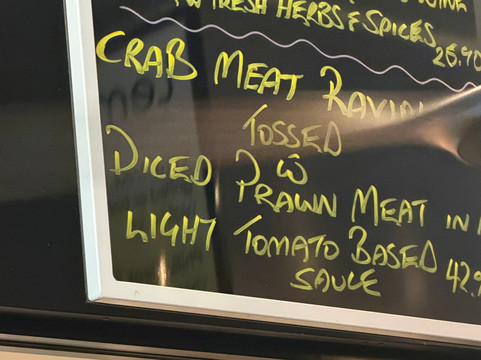 FRESH HERBS & SPICES
CRAB MEAT
TOSSED
DICED
PRAWN MEAT IN
LIGHT TOMATO BASED
SAUCE